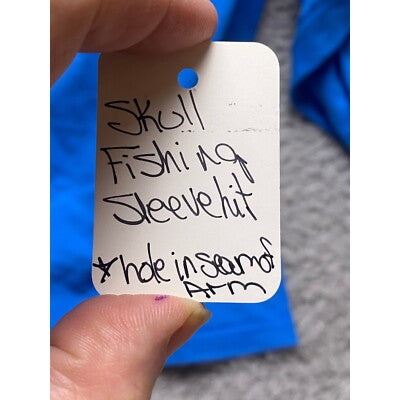 Skull
Fishing
Sleevehit
*hole in seam of
Arm